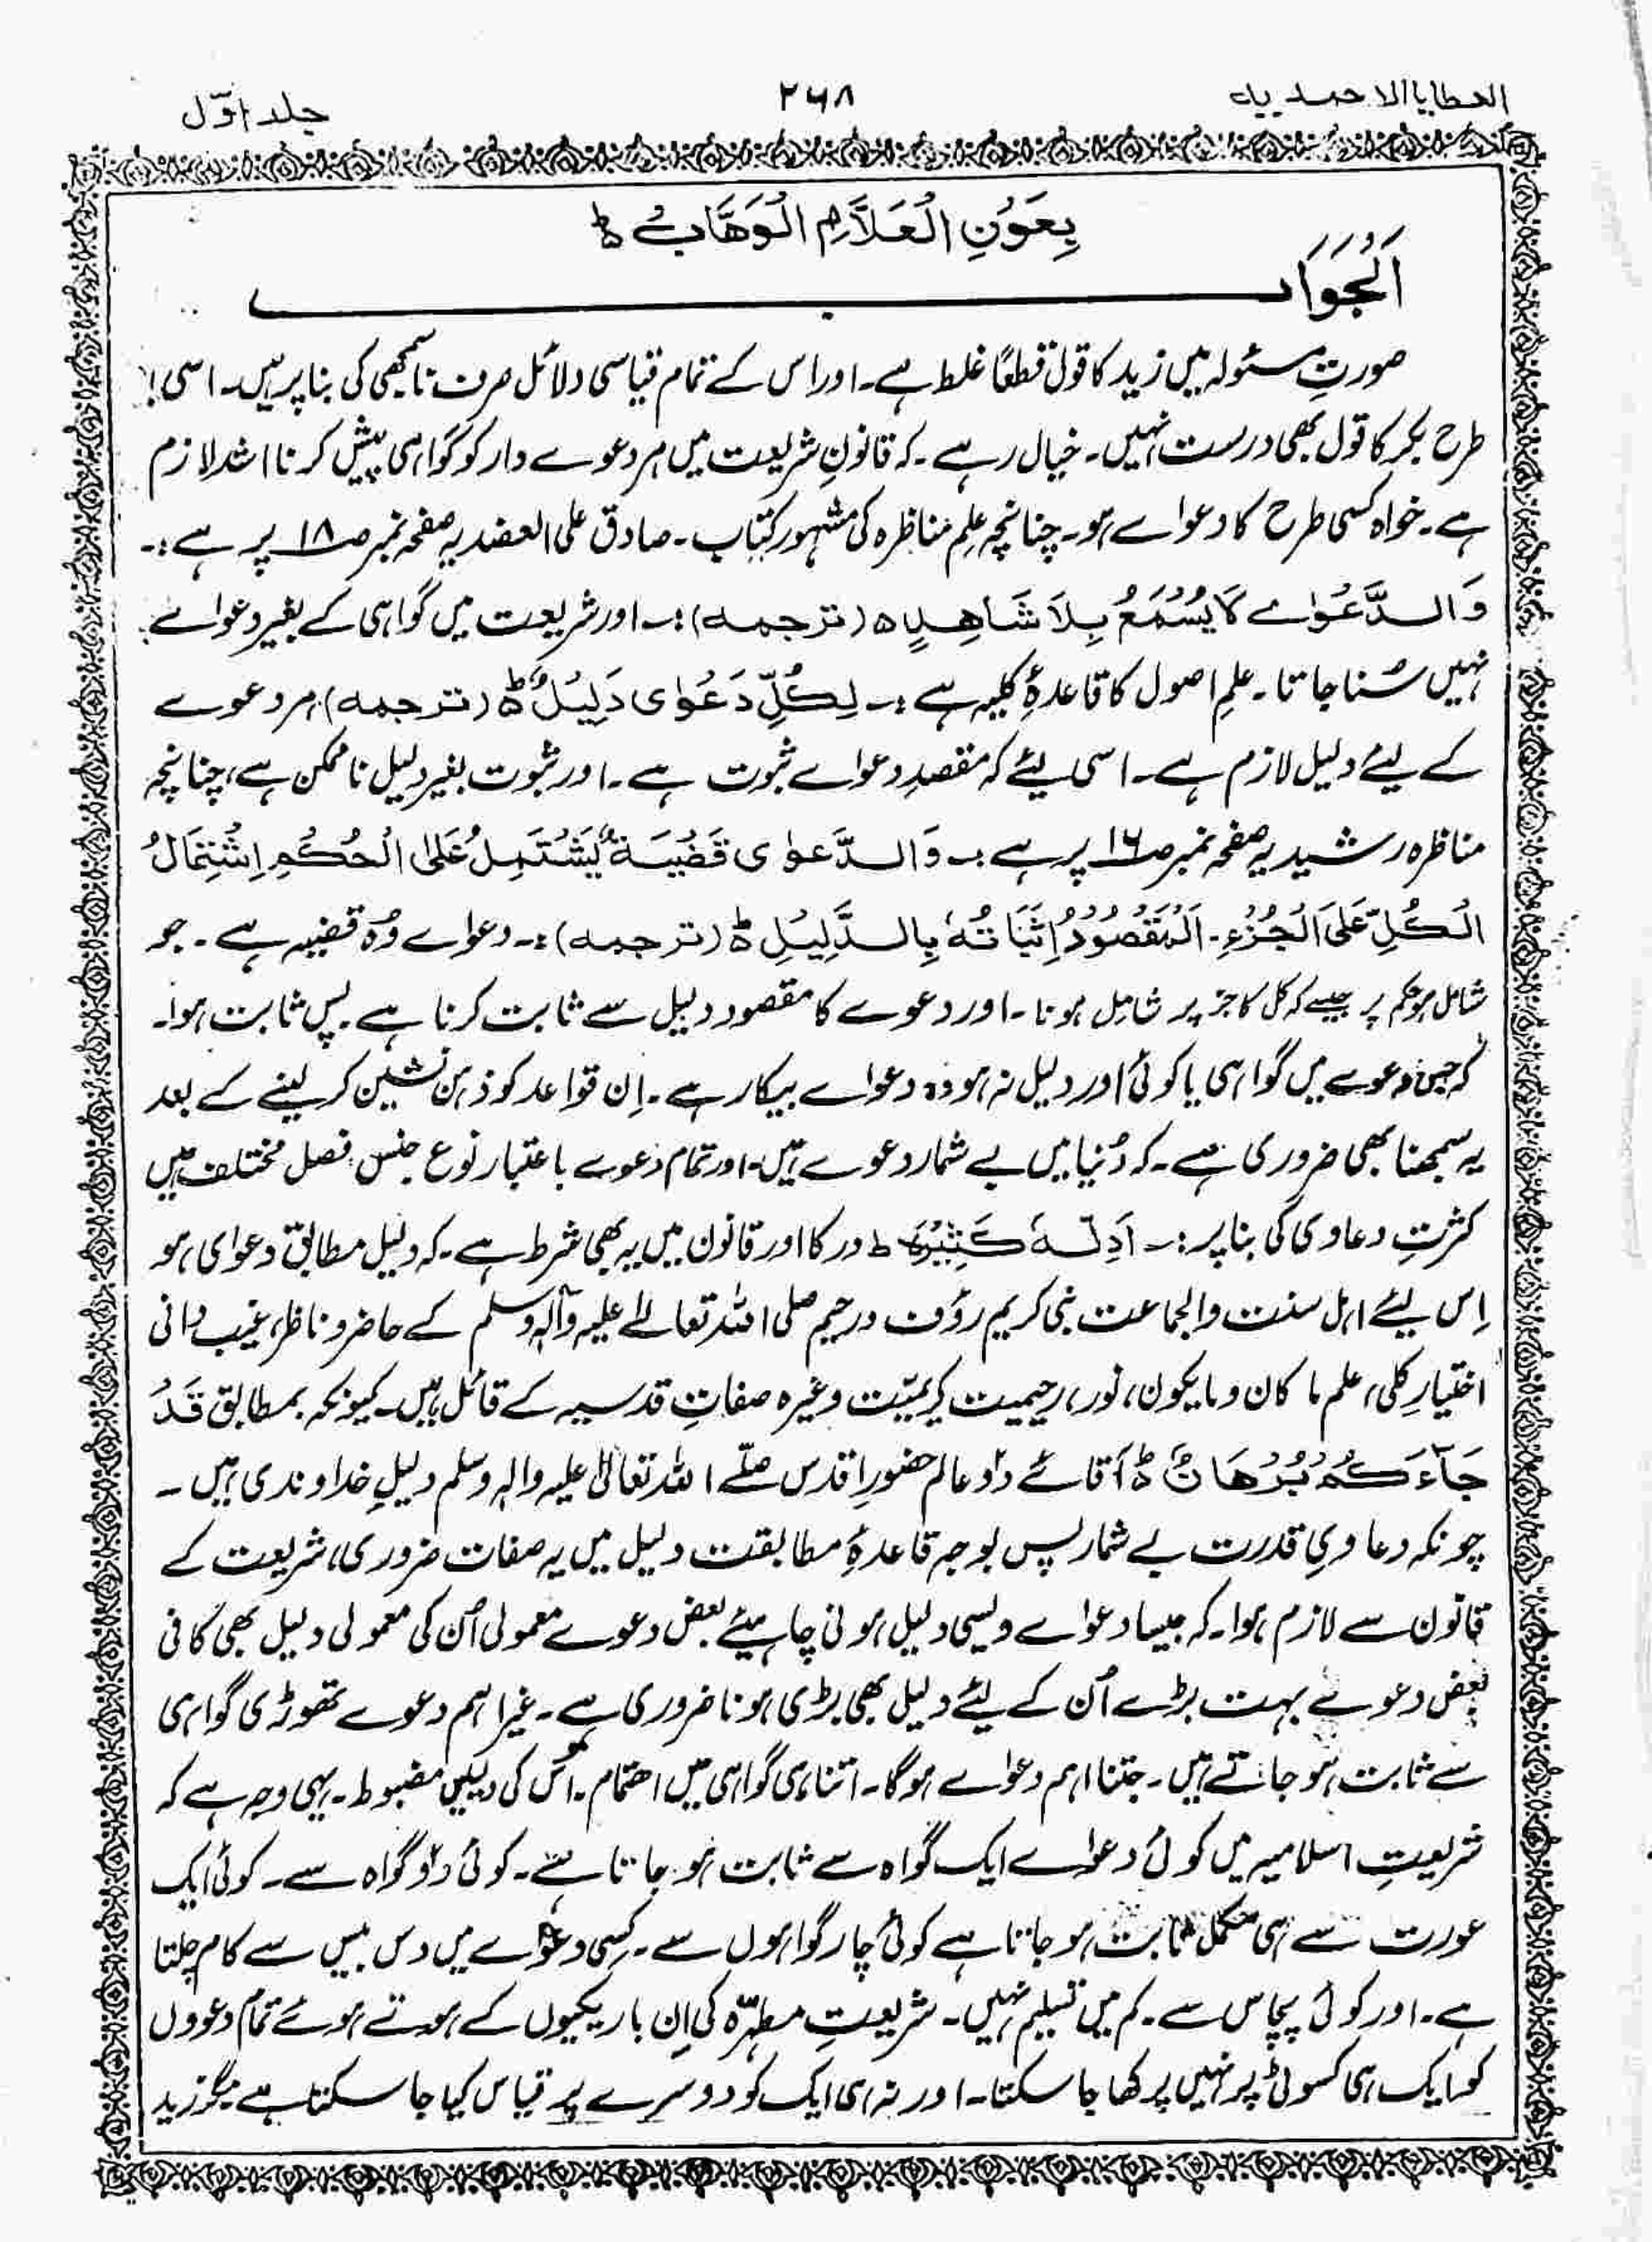 العطایا الاحمدیہ ۲۶۸ جلد اوّل
بِعَوْنِ الْعَلَّامِ الْوَهَّابُ ط
اَلْجَوَاب
صورتِ مسئولہ میں زید کا قول قطعًا غلط ہے۔ اور اس کے تمام قیاسی دلائل صرف ناسمجھی کی بنا پر ہیں۔ اسی!
طرح بکر کا قول بھی درست نہیں۔ خیال رہے۔ کہ قانونِ شریعت میں ہر دعوے دار کو گواہی پیش کرنا اشد لازم
ہے۔ خواہ کسی طرح کا دعواے ہو۔ چنانچہ علمِ مناظرہ کی مشہور کتاب۔ صادق علی العضدیہ صفحہ نمبر ص۱۸ پر ہے:۔
وَالدَّعْوٰے لَا یُسْمَعُ بِلَا شَاهِدٍ ہ (ترجمہ):۔ اور شریعت میں گواہی کے بغیر دعواے
نہیں سُنا جاتا۔ علمِ اصول کا قاعدۂِ کلیہ ہے:۔ لِكُلِّ دَعْوٰی دَلِیْلٌ ط (ترجمہ) ہر دعوے
کے لیئے دلیل لازم ہے۔ اسی لیئے کہ مقصدِ دعواے ثبوت ہے۔ اور ثبوت بغیر دلیل ناممکن ہے، چنانچہ
مناظرہ رشیدیہ صفحہ نمبر ص۱۶ پر ہے:۔ وَالدَّعوٰی قَضْیَةٌ یَّشْتَمِلُ عَلَی الْحُکْمِ اِشْتِمَالُ
الْكُلِّ عَلَی الْجُزْءِ۔ اَلْمَقْصُوْدُ اِثْبَاتُهٗ بِالدَّلِیْلِ ط (ترجمہ):۔ دعواے وُہ قضیہ ہے۔ جو
شامل ہو حکم پر جیسے کہ کل کا جز پر شامِل ہونا۔ اور دعوے کا مقصود دلیل سے ثابت کرنا ہے۔ پس ثابت ہوا۔
کہ جس دعوے میں گواہی یا کوئی اور دلیل نہ ہو وہ دعواے بیکار ہے۔ اِن قواعد کو ذہن نشین کر لینے کے بعد
یہ سمجھنا بھی ضروری ہے۔ کہ دُنیا میں بے شمار دعوے ہیں۔ اور تمام دعوے باعتبار نوع جنس فصل مختلف ہیں
کثرتِ دعاوی کی بنا پر:۔ اَدِلَّهٗ كَثِیْرَةٌ ط درکا اور قانون میں یہ بھی شرط ہے۔ کہ دلیل مطابق دعوای ہو
اِس لیئے اہل سنت والجماعت نبی کریم رؤف و رحیم صلی اللہ تعالےٰ علیہ وآلہٖ وسلم کے حاضر و ناظر، غیب دانی
اختیارِ کلی، علم ما کان وما یکون، نور، رحیمیت کریمیّت وغیرہ صفاتِ قدسیہ کے قائل ہیں۔ کیونکہ بمطابق قَدْ
جَآءَكُمْ بُرْهَانٌ ط آقائے دو عالم حضورِ اقدس صلّے اللہ تعالیٰ علیہ والہٖ وسلم دلیلِ خداوندی ہیں۔
چونکہ دعاویِ قدرت بے شمار پس بوجہ قاعدۂِ مطابقت دلیل میں یہ صفات ضروری، شریعت کے
قانون سے لازم ہوا۔ کہ جیسا دعواے ویسی دلیل ہونی چاہیئے بعض دعوے معمولی اُن کی معمولی دلیل بھی کافی
بعض دعوے بہت بڑے اُن کے لیئے دلیل بھی بڑی ہونا ضروری ہے۔ غیر اہم دعوے تھوڑی گواہی
سے ثابت ہو جاتے ہیں۔ جتنا اہم دعواے ہوگا۔ اتنا ہی گواہی میں اھتمام۔ اُس کی دلیلیں مضبوط۔ یہی وجہ ہے کہ
شریعتِ اسلامیہ میں کوئی دعواے ایک گواہ سے ثابت ہو جاتا ہے۔ کوئی دو گواہ سے۔ کوئی ایک
عورت سے ہی مکمل ثابت ہو جاتا ہے کوئی چار گواہوں سے۔ کِسی دعوٰے میں دس بیس سے کام چلتا
ہے۔ اور کوئی پچاس سے۔ کم میں تسلیم نہیں۔ شریعتِ مطہّرہ کی اِن باریکیوں کے ہوتے ہوئے تمام دعووں
کو ایک ہی کسوٹی پر نہیں پرکھا جا سکتا۔ اور نہ ہی ایک کو دوسرے پر قیاس کیا جا سکتا ہے مگر زید